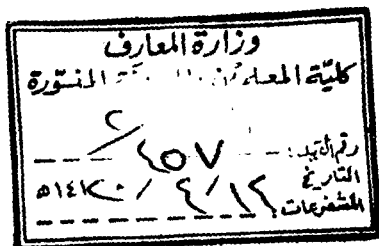 وزارة المعارف
كلية المعلمين بالمدينة المنورة
رقم القيد: ٤٥٧ / ٢
التاريخ ١٢ / ٤ / ١٤٢٠هـ
المشفوعات: